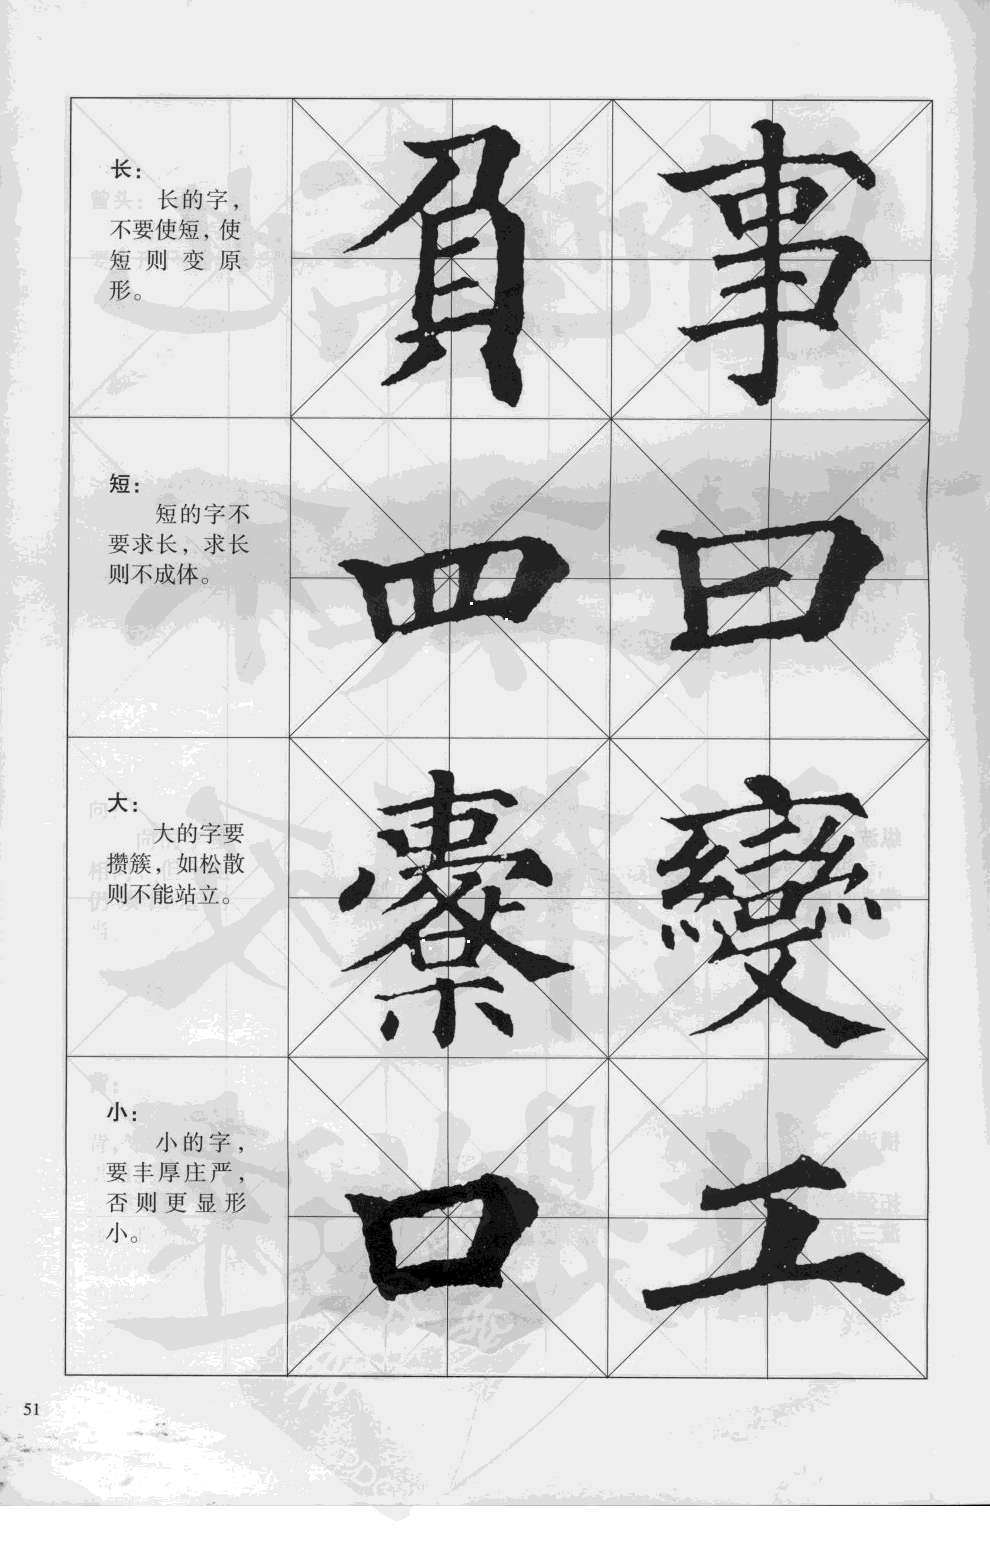 长：
长的字，
不要使短，使
短则变原
形。
負 事
短：
短的字不
要求长，求长
则不成体。
四 曰
大：
大的字要
攒簇，如松散
则不能站立。
橐 變
小：
小的字，
要丰厚庄严，
否则更显形
小。
口 工
51